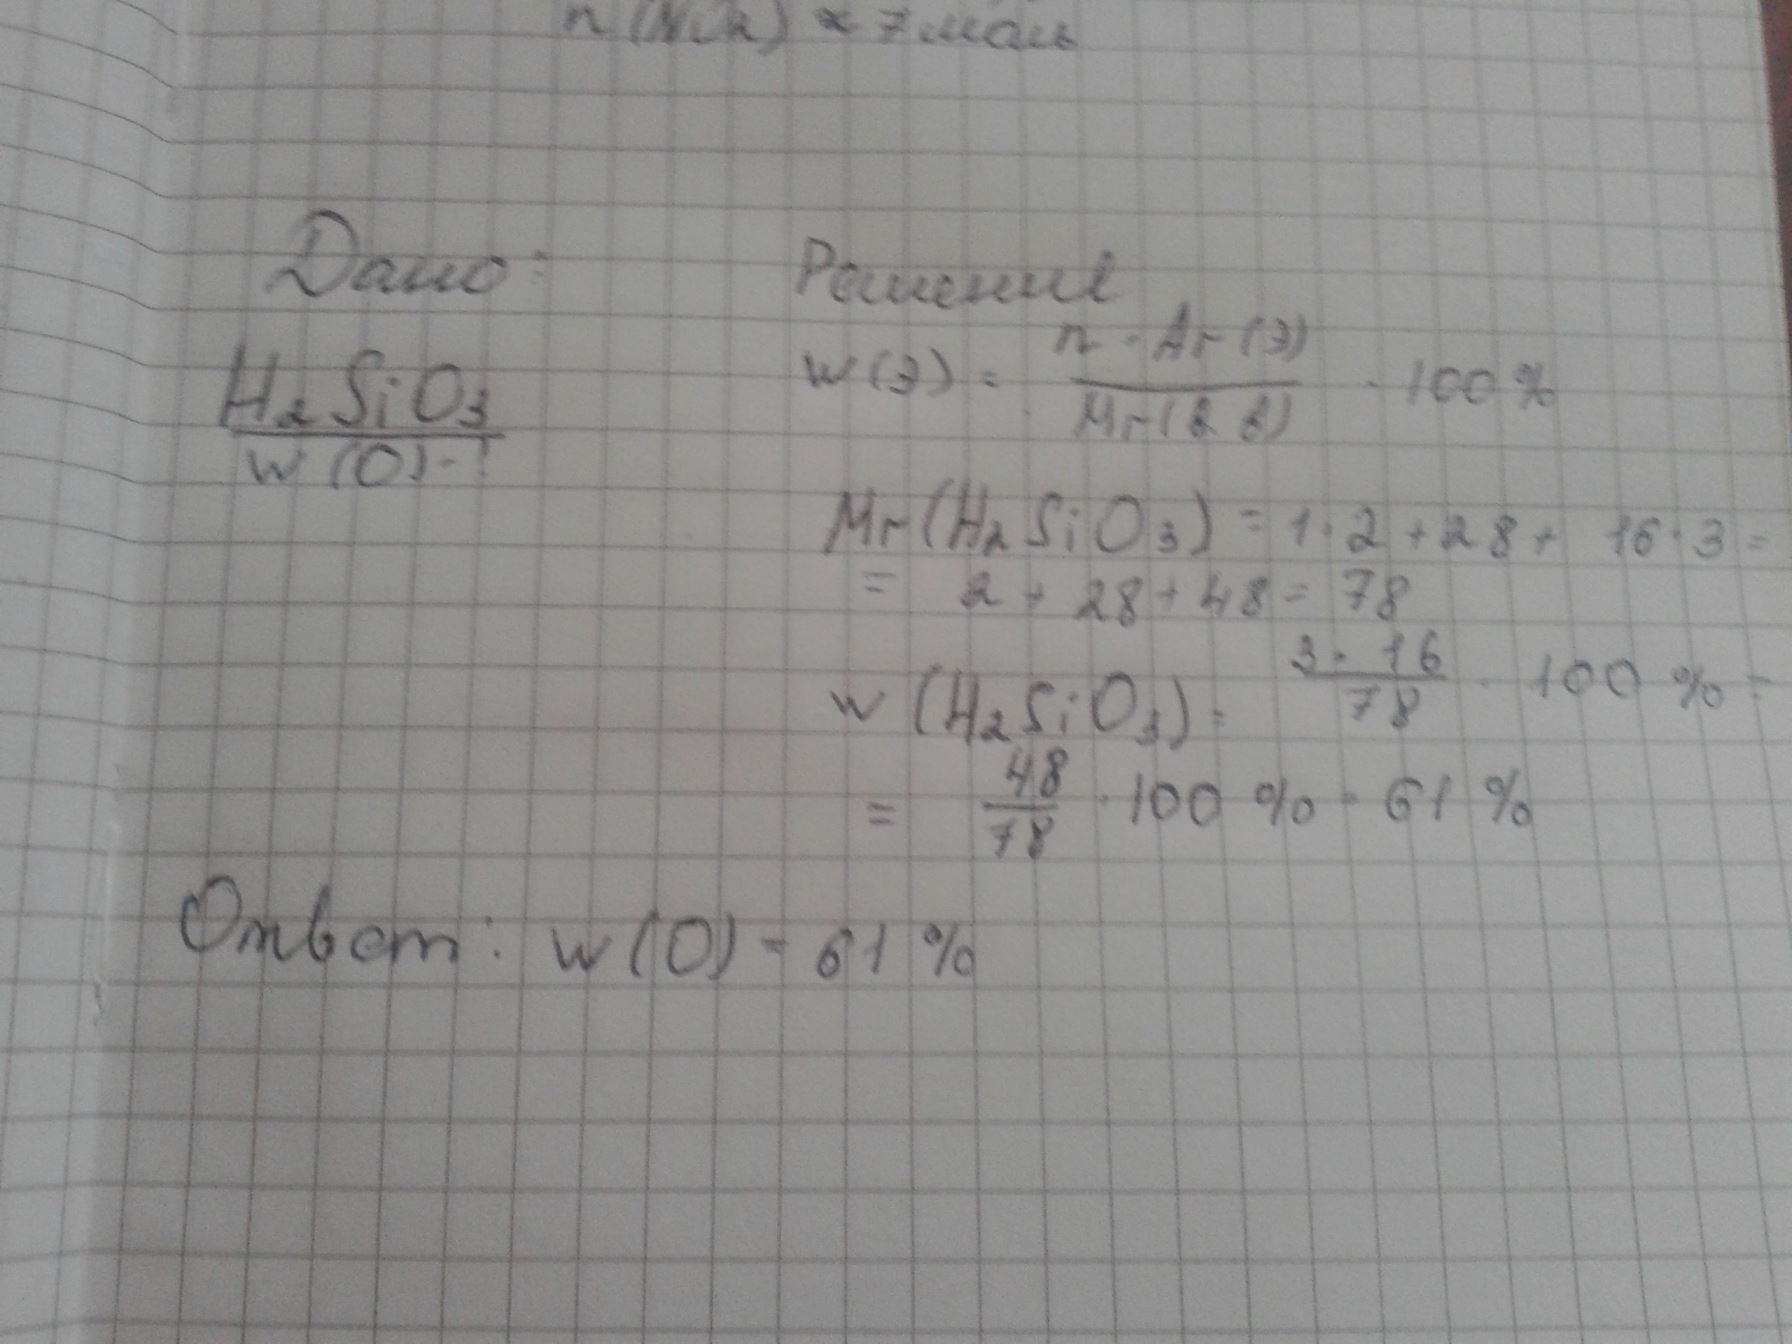 ≈ 7 моль
Дано:
H₂SiO₃
w(O)-?
Решение
w(Э) = n · Ar(Э) / Mr(в в) · 100 %
Mr(H₂SiO₃) = 1·2 + 28 + 16·3 =
= 2 + 28 + 48 = 78
w(H₂SiO₃) = 3·16 / 78 · 100 % =
= 48 / 78 · 100 % = 61 %
Ответ: w(O) = 61 %